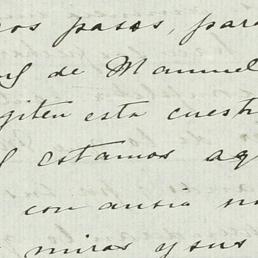 pasos, para
de Manuel
agiten esta cuest
estamos aq
con ansia
miras y sus